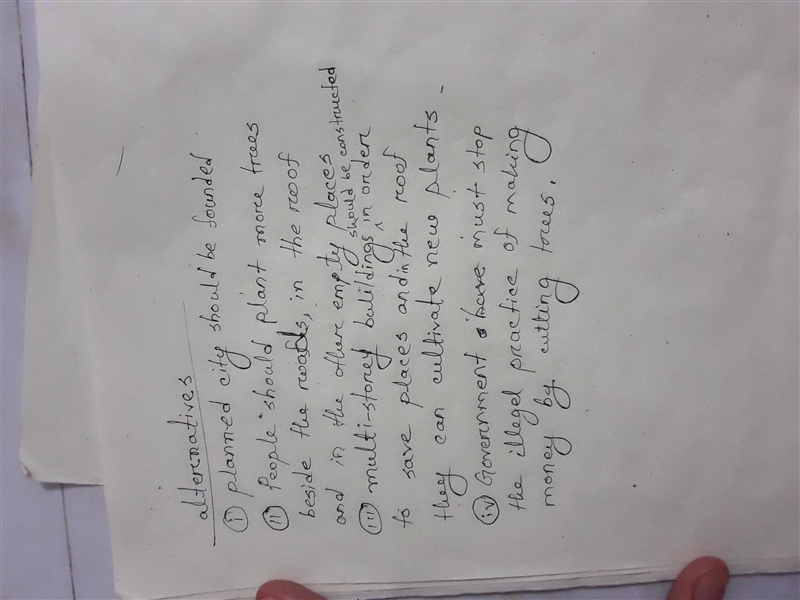 alternatives
(i) planned city should be founded
(ii) People should plant more trees
beside the roads, in the roof
and in the other empty places
(iii) multi-storey buildings should be constructed in order
to save places and in the roof
they can cultivate new plants.
(iv) Government must stop
the illegal practice of making
money by cutting trees.